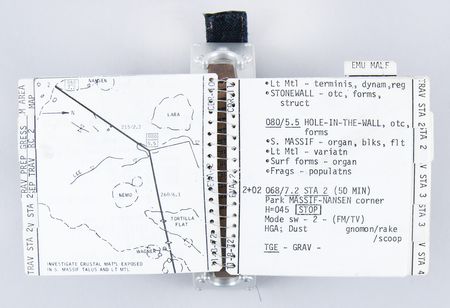 NANSEN
LARA
215/2.1
NEMO
260/6.1
TORTILLA
FLAT
WAGNER
INVESTIGATE CRUSTAL MAT'L EXPOSED
IN S. MASSIF TALUS AND LT MTL
MAP
TRAV STA 2
EMU MALF
•Lt Mtl - terminis, dynam, reg
•STONEWALL - otc, forms,
struct
080/5.5 HOLE-IN-THE-WALL, otc,
forms
•S. MASSIF - organ, blks, flt
•Lt Mtl - variatn
•Surf forms - organ
•Frags - populatns
2+02 068/7.2 STA 2 (50 MIN)
Park MASSIF-NANSEN corner
H=045 STOP
Mode sw - 2 - (FM/TV)
HGA; Dust gnomon/rake
/scoop
TGE - GRAV -
TRAV STA 2
V STA 3
V STA 4